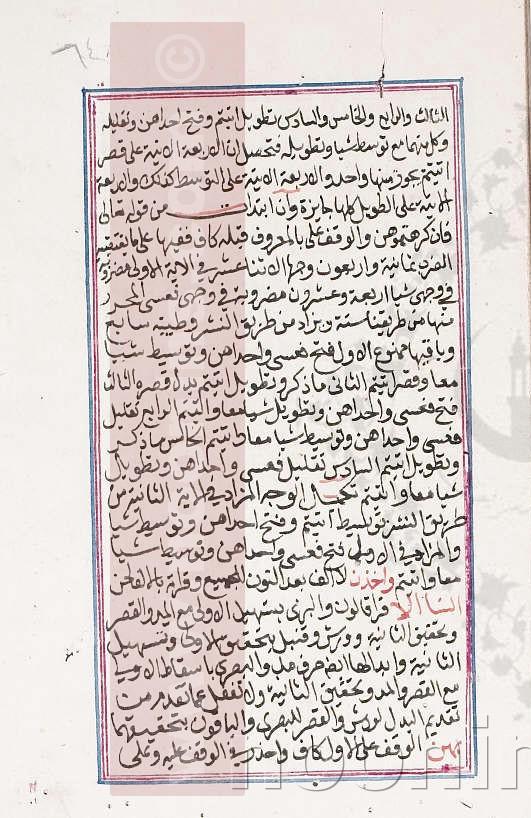 الثالث والرابع والخامس والسادس تطويل اتيتم وفتح احداهن وتقليله
وكل منهما مع توسط شيا وتطويله فتحصل ان الاربعة الاتية على قصر
اتيتم يجوز منها واحد والاربعة الاتية على التوسط كذلك والاربعة
الاتية على الطويل كلها جايزة وان ابتدات من قوله تعالى
فان كرهتموهن والوقف على بالمعروف قبله كاف ففيها على ما يقتضيه
الضرب ثمانية واربعون وجها الاثنا عشر في الاية الاولى مضروبة
في وجهي شيا اربعة وعشرون مضروبة في وجهي فعسى المحرر
منها من طريقنا ستة ويزاد من طريق النشر وطيبته سابع
وباقيها ممنوع الاول فتح فعسى واحداهن وتوسيط شيا
معا وقصر اتيتم الثاني ما ذكر وتطويل اتيتم بدل قصره الثالث
فتح فعسى واحداهن وتطويل شيا معا واتيتم الرابع تقليل
فعسى واحداهن وتوسيط شيا معا واتيتم الخامس ما ذكر
وتطويل اتيتم السادس تقليل فعسى واحداهن وتطويل
شيا معا واتيتم تكميل الوجه المزاد في الاية الثانية من
طريق النشر توسيط اتيتم وفتح احداهن وتوسيط شيا
والمزاد في الاولى فتح فعسى واحداهن وتوسيط شيا
معا واتيتم واخذن لا الف بعد النون للجميع وقراءة بالف لحن
النسا الا قرا قالون والبزي بتسهيل الاولى مع المد والقصر
وتحقيق الثانية وورش وقنبل بتحقيق الاولى وتسهيل
الثانية وابدالها ايضا حرف مد والبصري باسقاط الاولى
مع القصر والمد وتحقيق الثانية ولا تغفل عما تقدم من
تقديم البدل لورش والقصر للبصري والباقون بتحقيقهما
بهن الوقف على الاول كاف واحذر في الوقف عليه وعلى